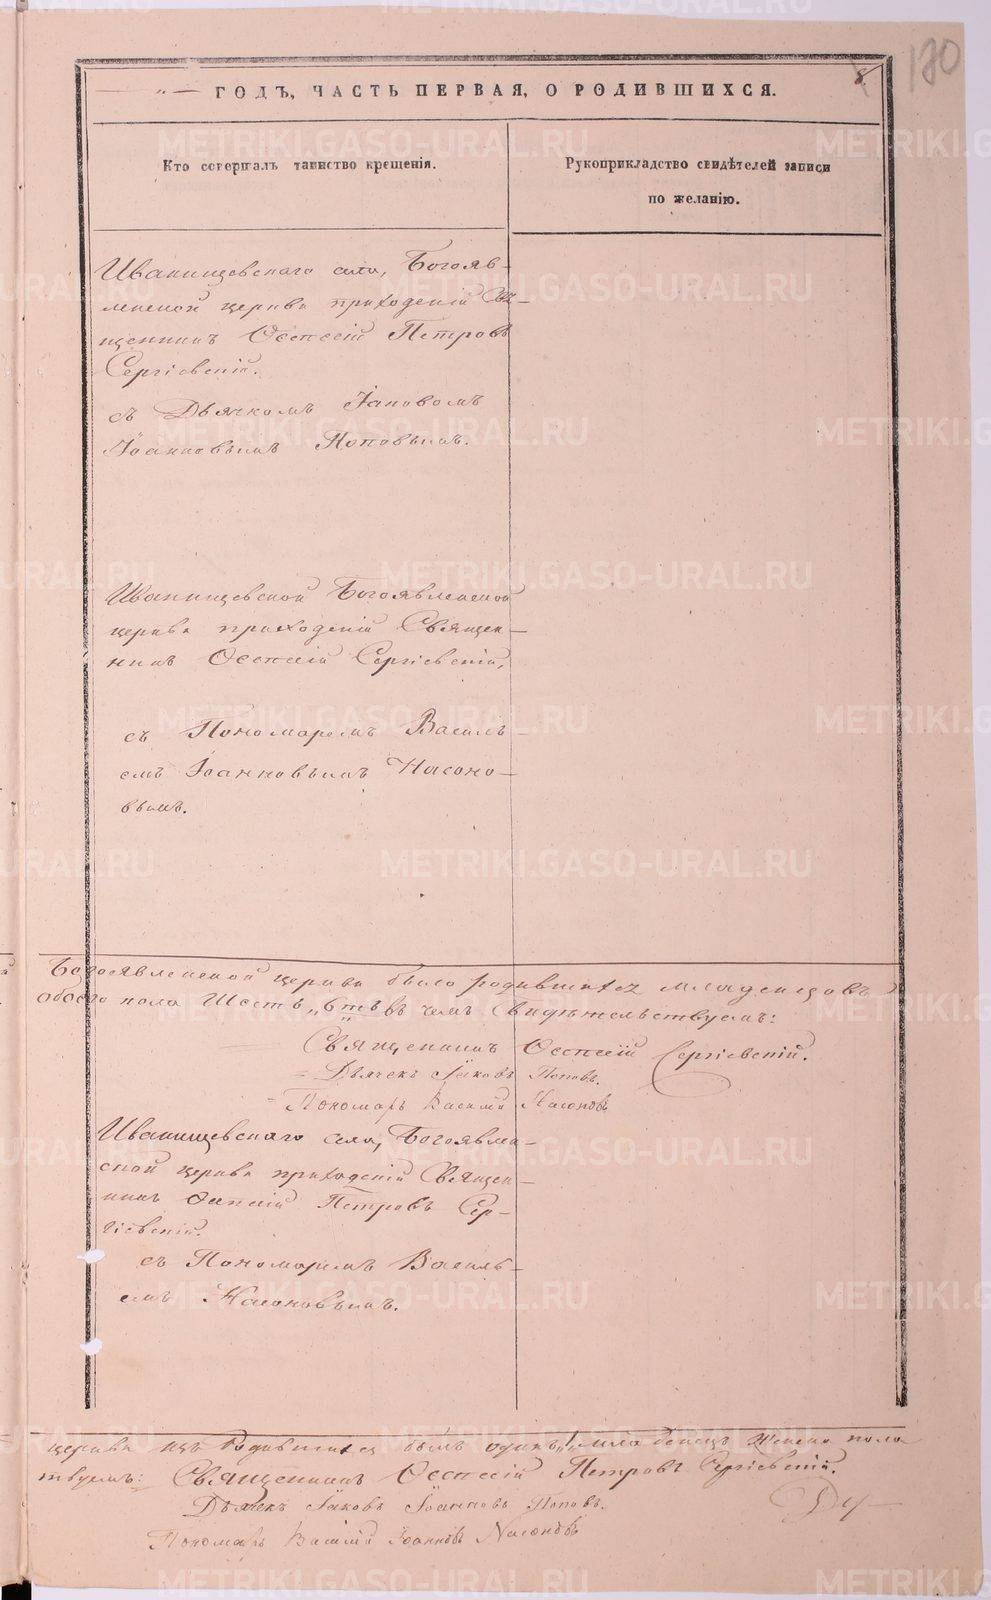 180
8
" — ГОДЪ, ЧАСТЬ ПЕРВАЯ, О РОДИВШИХСЯ.
Кто совершалъ таинство крещенія.
Рукоприкладство свидѣтелей записи
по желанію.
Иванищевскаго села, Богояв-
ленской церкви приходскій Свя-
щенникъ Евгеній Петровъ
Сергіевскій.
съ Дьячкомъ Іаковомъ
Іоанновымъ Поповымъ.
Иванищевской Богоявленской
церкви приходскій Священ-
никъ Сергіевскій,
съ Пономаремъ Василь-
емъ Іоанновымъ Насоно-
вымъ.
Богоявленской церкви было родившихся младенцовъ
обоего пола Шесть, въ чемъ Свидѣтельствуемъ:
Священникъ Сергіевскій.
— Дьячекъ Іаковъ Поповъ.
— Пономарь Василій Насоновъ
Иванищевскаго села, Богоявлен-
ской церкви приходскій Священ-
никъ Петровъ Сер-
гіевскій.
съ Пономаремъ Василь-
емъ Насоновымъ.
церкви изъ Родившихся былъ одинъ младенецъ Женска пола
твуемъ: Священникъ Петровъ Сергіевскій.
Дьячекъ Іаковъ Іоанновъ Поповъ.
Пономарь Василій Іоанновъ Насоновъ
METRIKI.GASO-URAL.RU